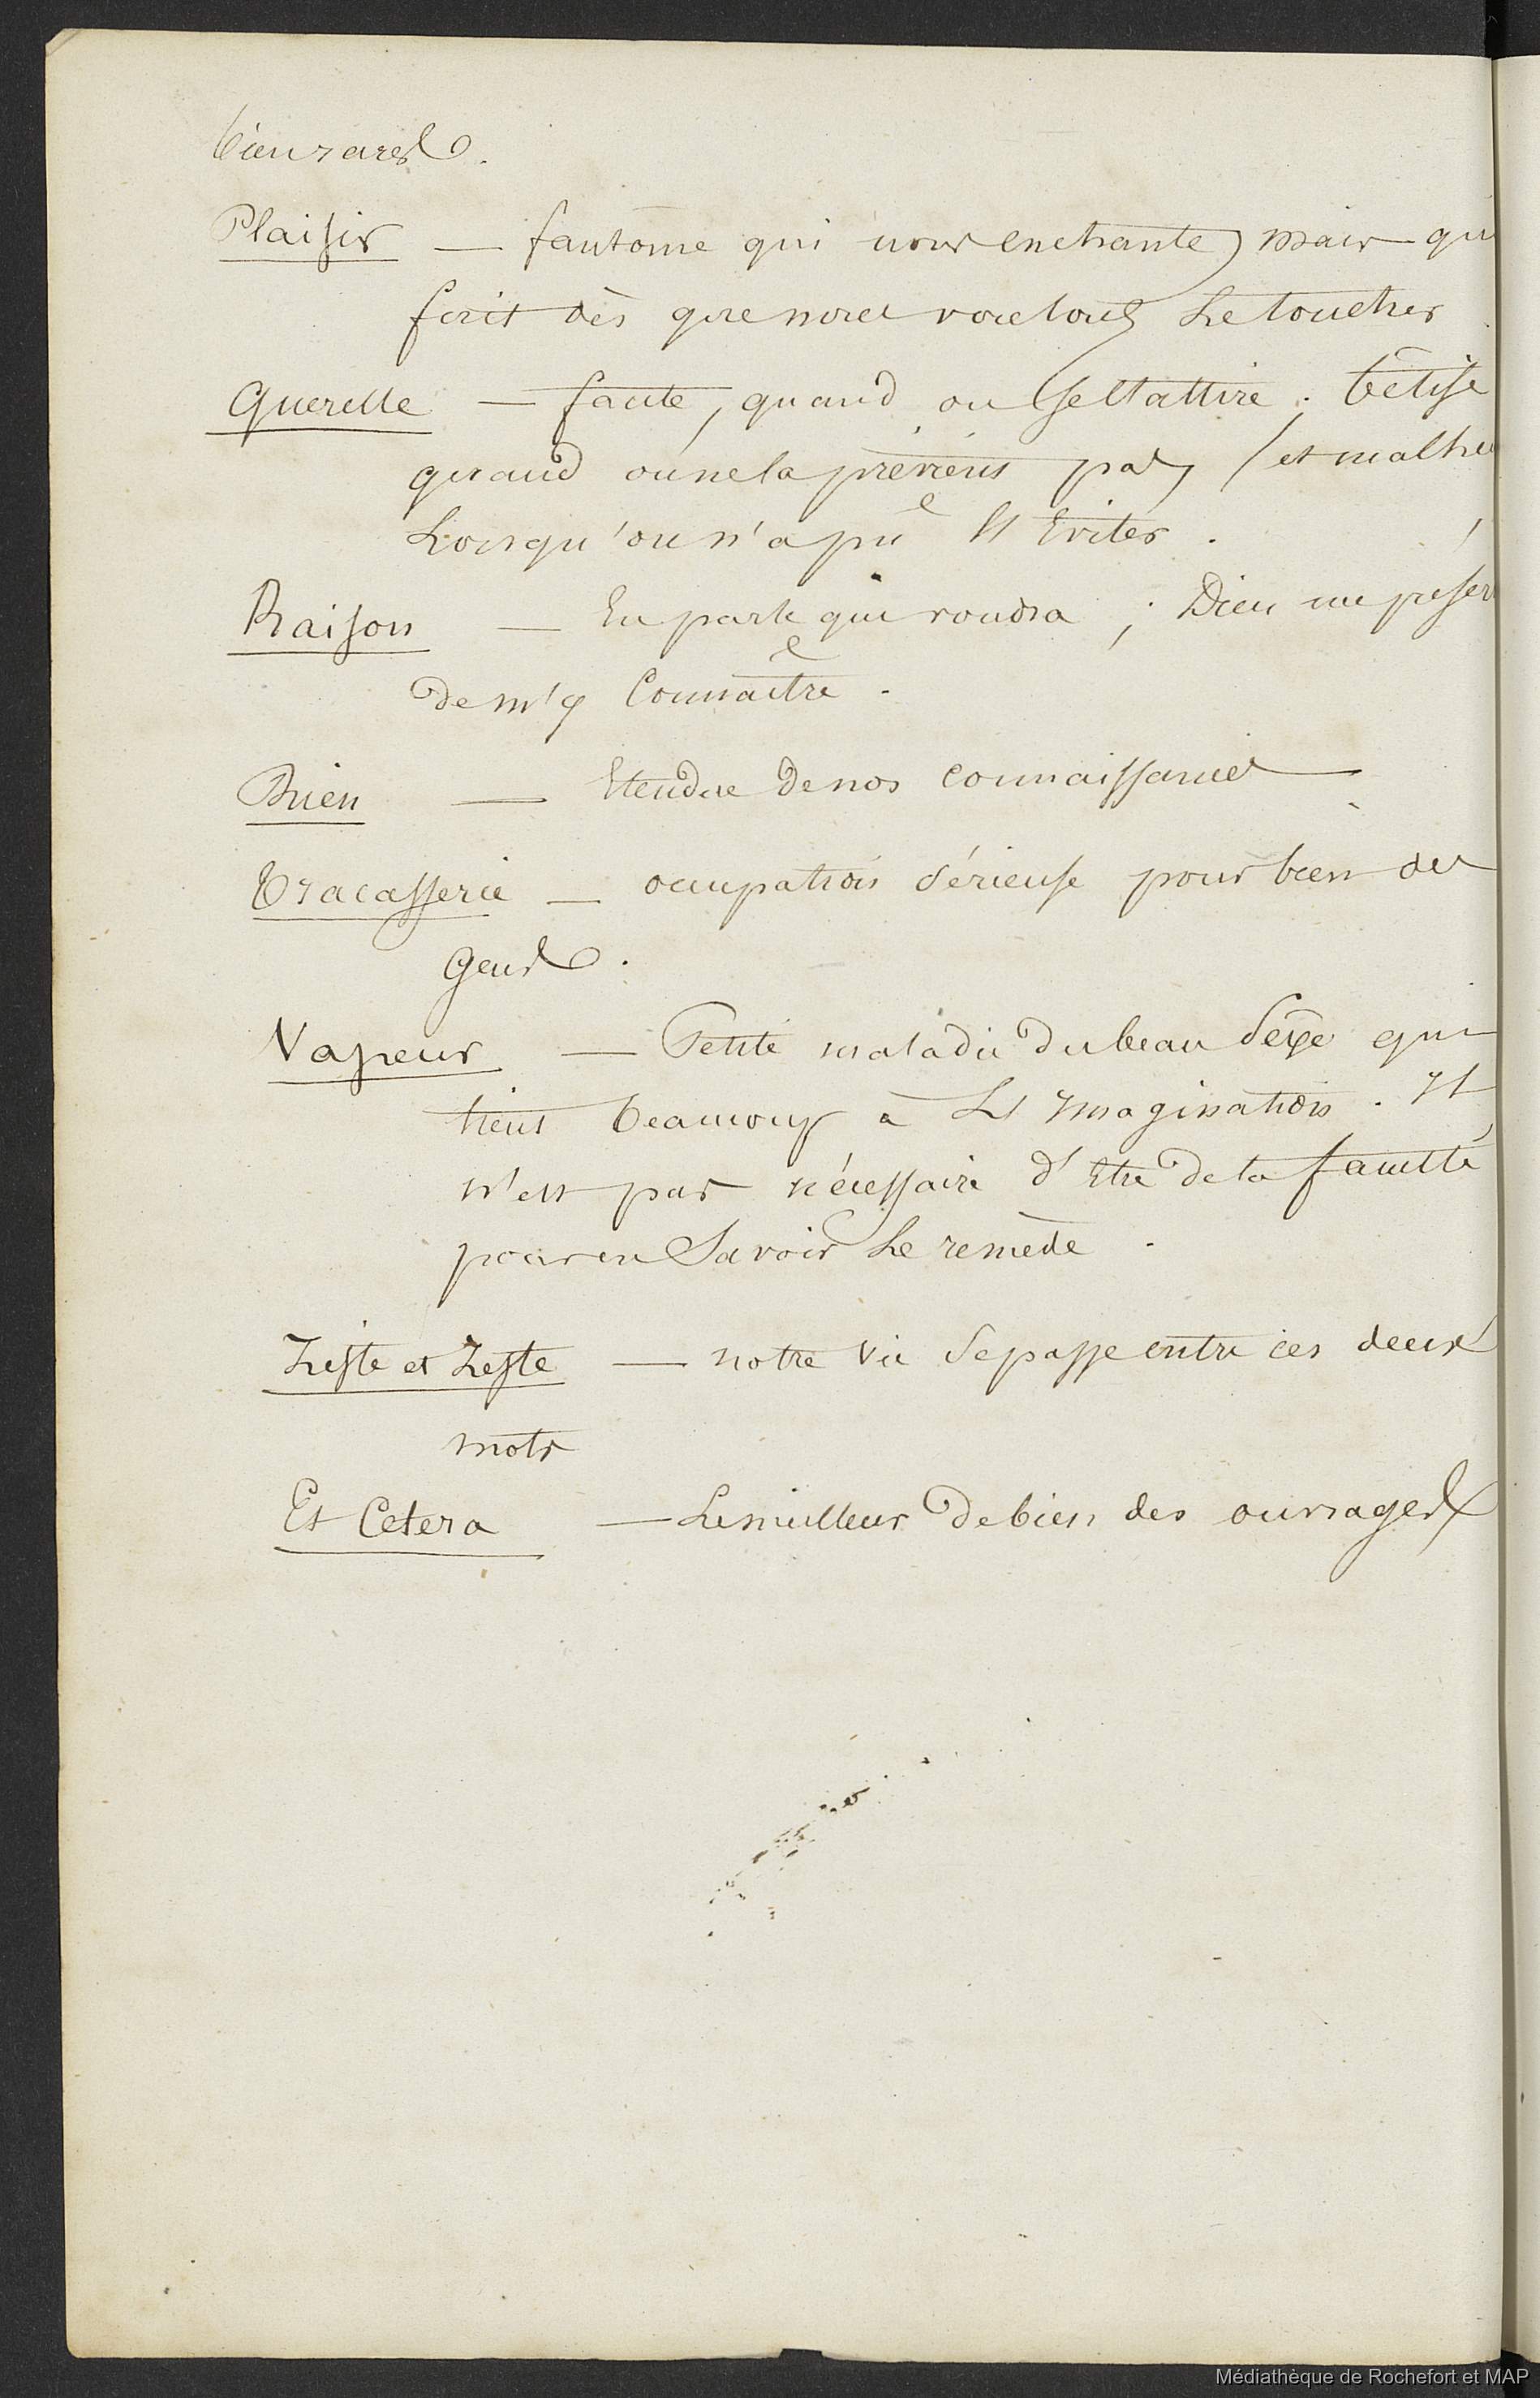 bien rares.
Plaisir — fantôme qui nous enchante, mais qu
fuit dès que nous voulons Le toucher
Querelle — faute, quand on se l'attire ; bêtise
quand on ne la prévient pas, et malheu
Lorsqu'on n'a pu L'Eviter.
Raison — En parle qui voudra ; Dieu me préser
de m'y Connaître.
Rien — Etendue de nos connaissances
Tracasserie — occupation sérieuse pour bien des
Gens.
Vapeur — Petite maladie du beau Sexe qui
tient beaucoup à L'Imagination. Il
n'est pas nécessaire d'Etre de la faculté
pour en Savoir Le remède.
Ziste et Zeste — notre vie se passe entre ces deux
mots
Et Cetera — Le meilleur de bien des ouvrages
Médiathèque de Rochefort et MAP